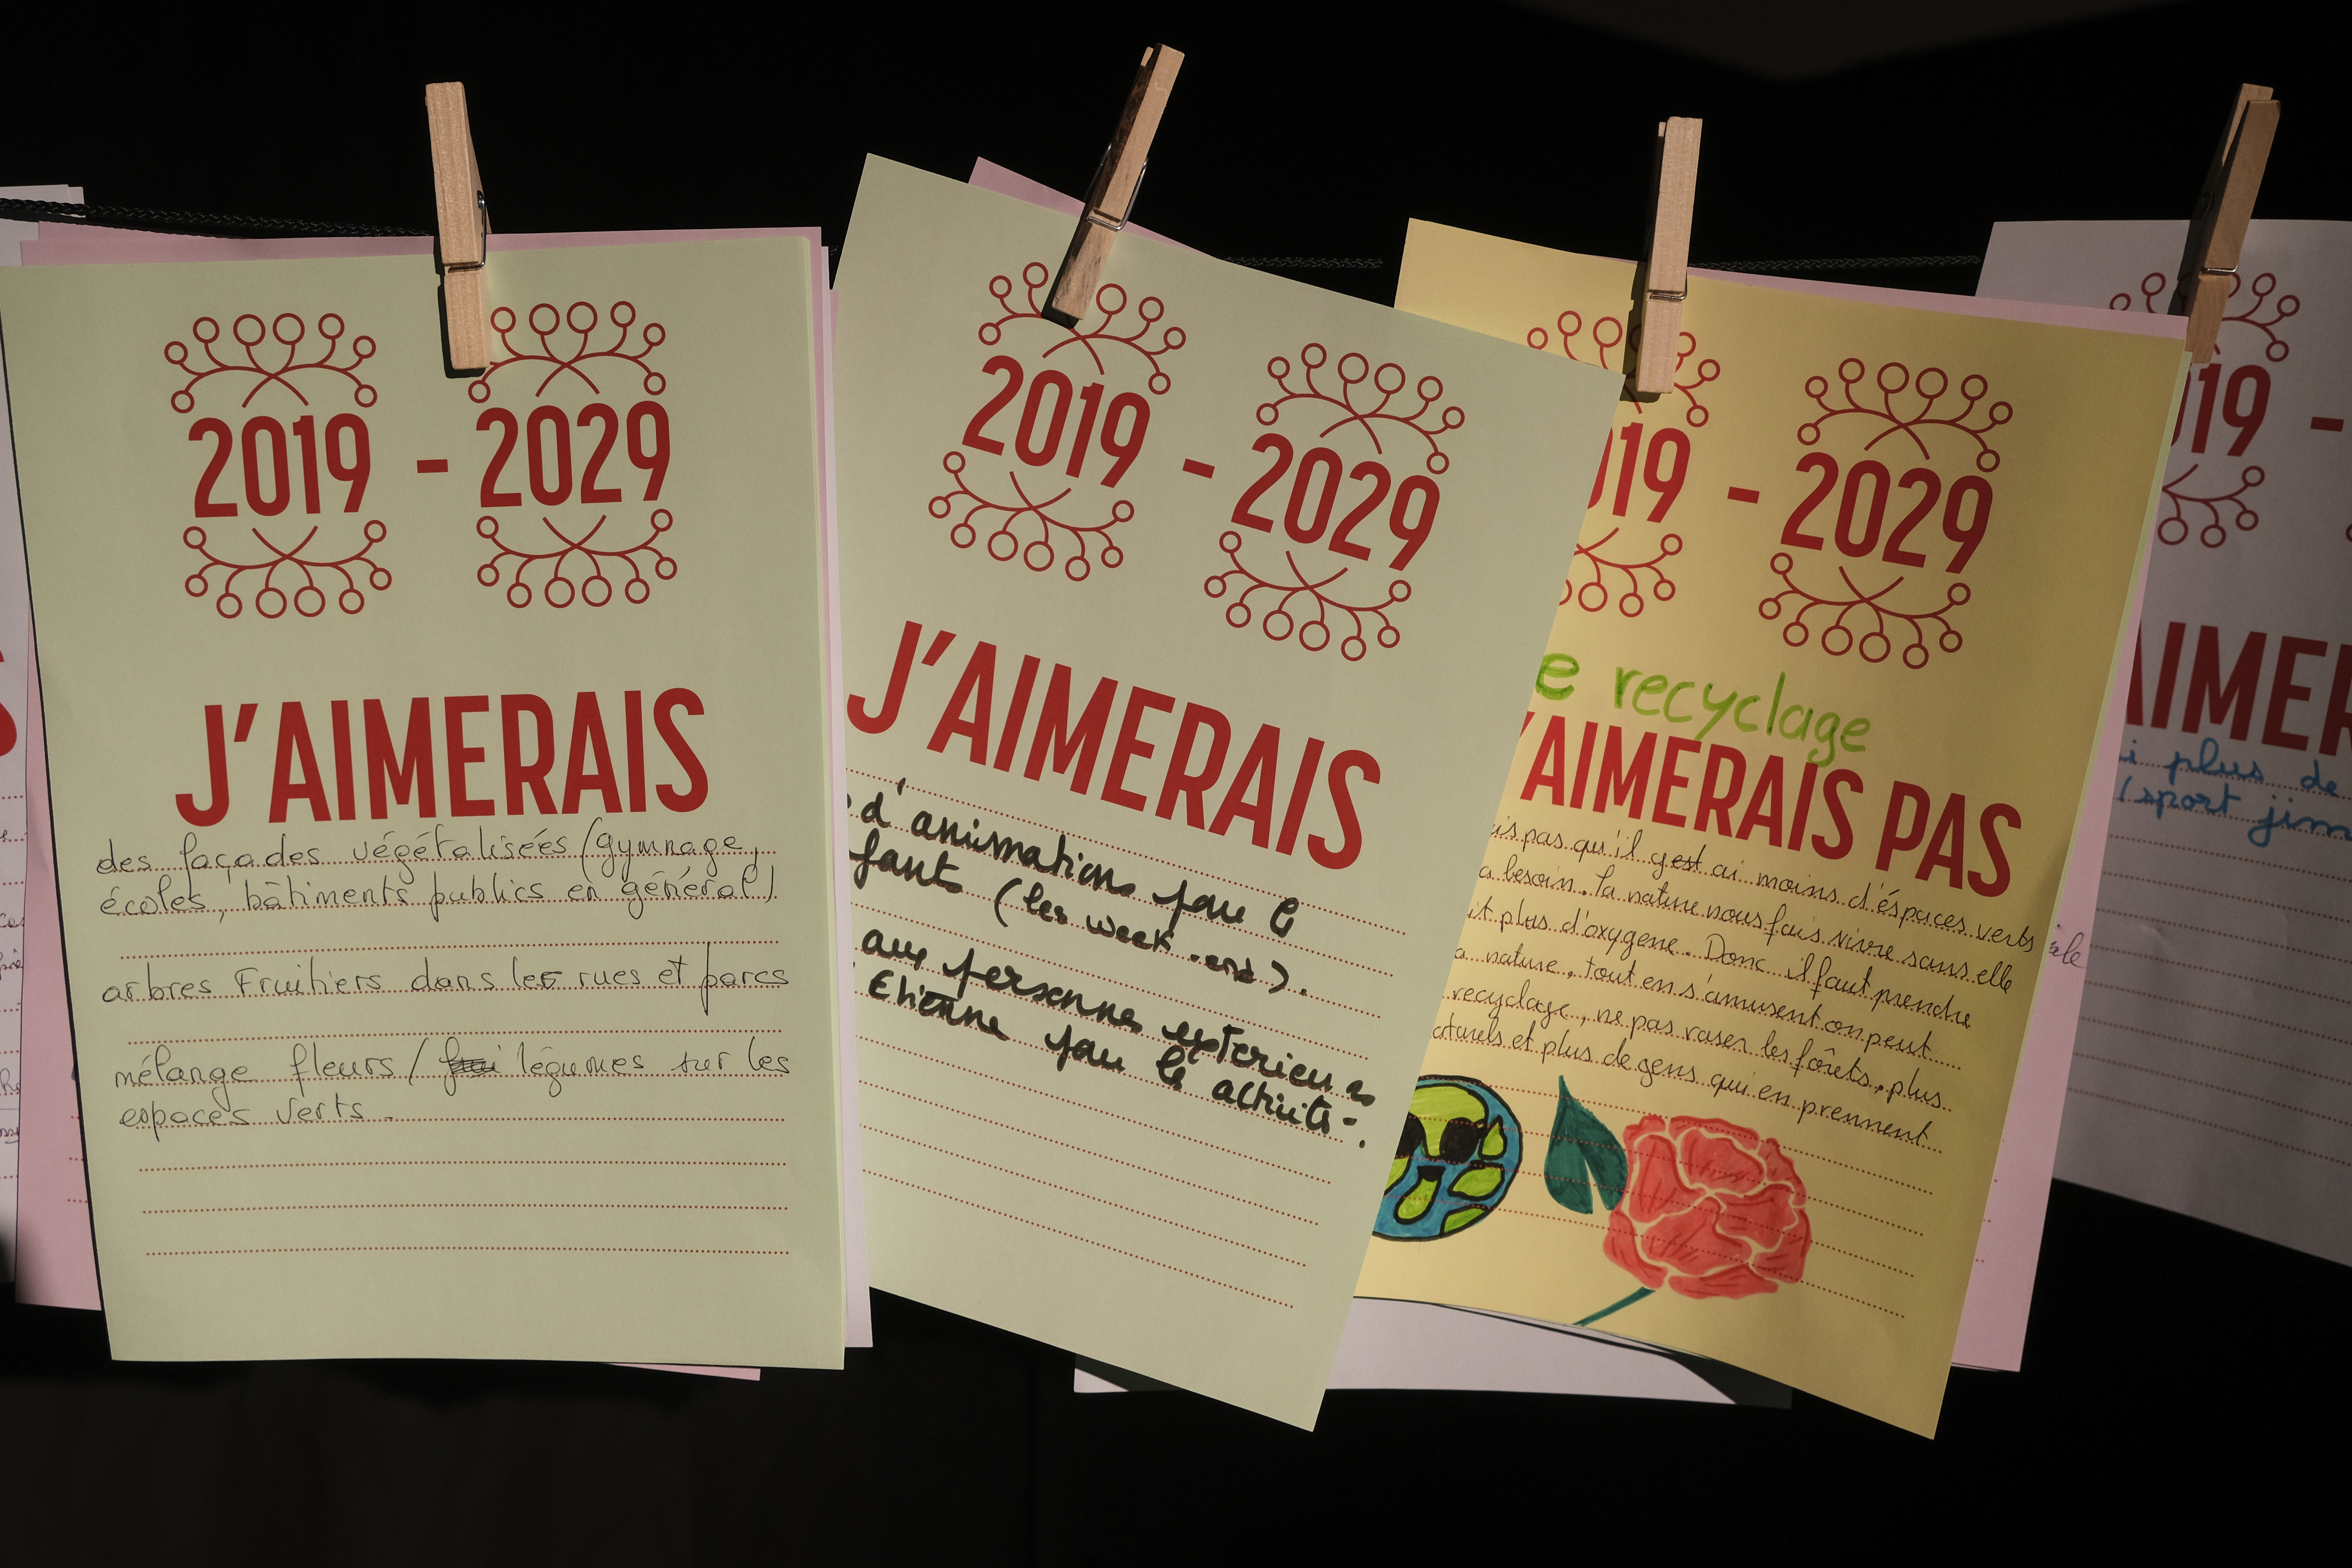 2019 - 2029
J'AIMERAIS
des façades végétalisées (gymnage,
écoles, bâtiments publics en général)
arbres Fruitiers dans les rues et parcs
mélange fleurs / légumes sur les
espaces verts.
2019 - 2029
J'AIMERAIS
d'animations pour le
fants (les week-end).
aux personnes exterieures
Etienne pour les activités.
19 - 2029
e recyclage
'AIMERAIS PAS
is pas qu'il y ai moins d'éspaces verts
a besoin. la nature nous fais vivre sans elle
it plus d'oxygene. Donc il faut prendre
a nature, tout en s'amusent on peut
recyclage, ne pas raser les fôrets, plus
aturels et plus de gens qui en prennent
èle
19 -
AIMER
i plus de
/sport jim